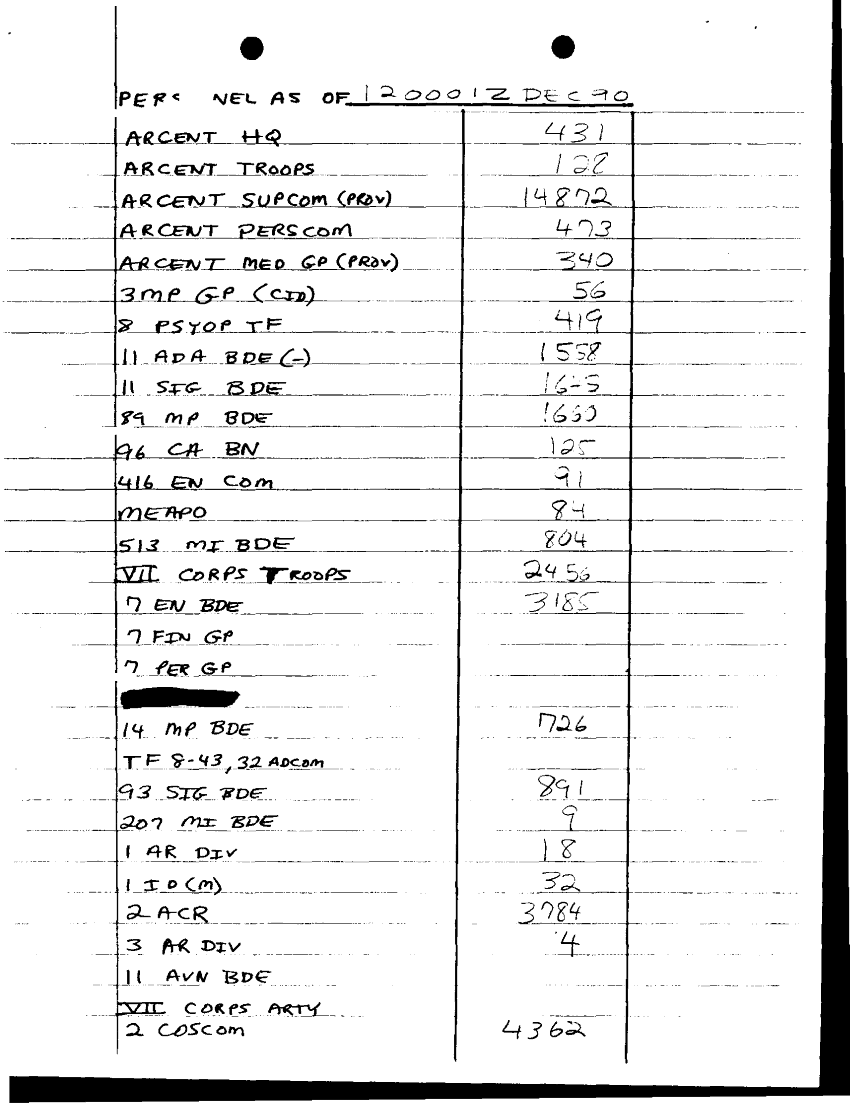 PERS NEL AS OF 120001Z DEC 90
ARCENT HQ 431
ARCENT TROOPS 128
ARCENT SUPCOM (PROV) 14872
ARCENT PERSCOM 473
ARCENT MED GP (PROV) 340
3 MP GP (CID) 56
8 PSYOP TF 419
11 ADA BDE (-) 1558
11 SIG BDE
89 MP BDE
96 CA BN 125
416 EN COM 91
MEAPO 84
513 MI BDE 804
VII CORPS TROOPS 2456
7 EN BDE 3185
7 FIN GP
7 PER GP
14 MP BDE 726
TF 8-43, 32 ADCOM
93 SIG BDE 891
207 MI BDE 9
1 AR DIV 18
1 ID (M) 32
2 ACR 3784
3 AR DIV 4
11 AVN BDE
VII CORPS ARTY
2 COSCOM 4362